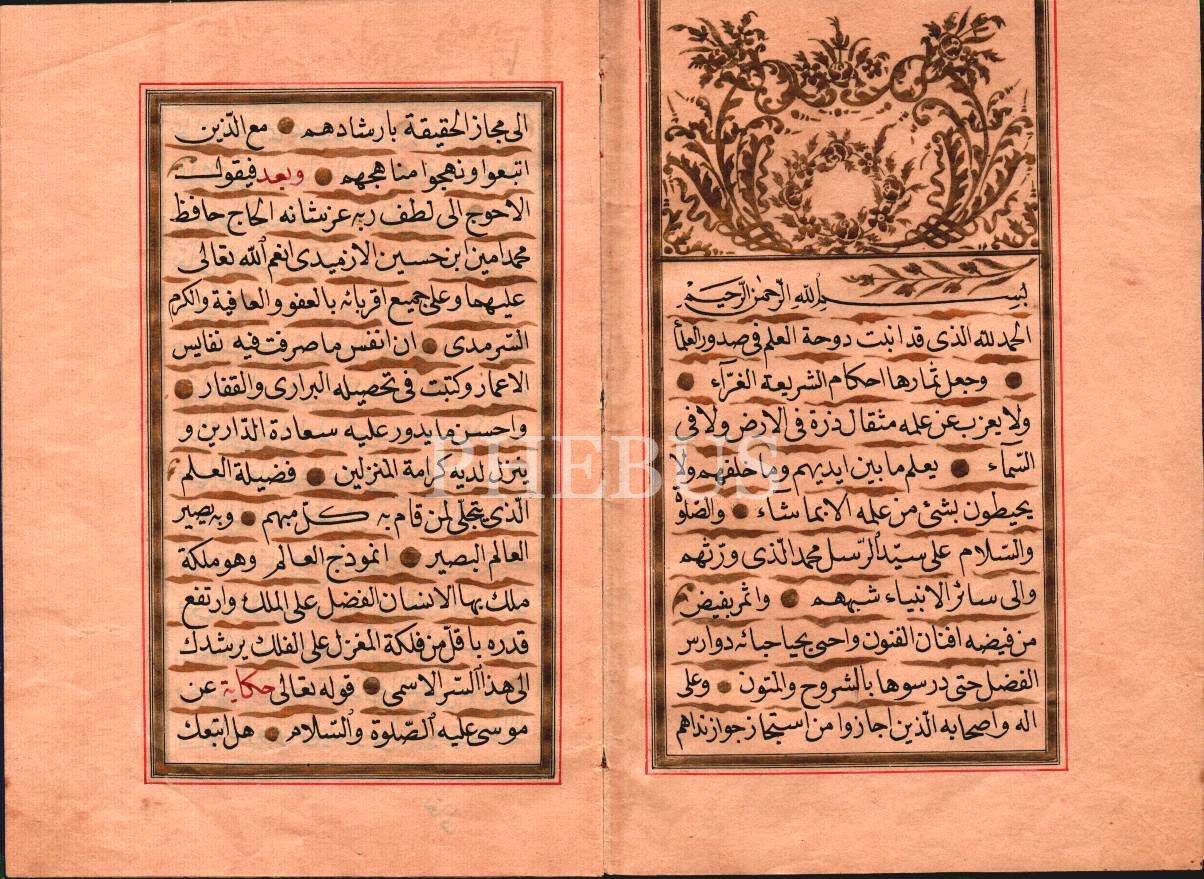 بسم الله الرحمن الرحيم
الحمد لله الذى قد انبت دوحة العلم فى صدور العلمأ
وجعل ثمارها احكام الشريعة الغرّآء
ولا يعزب عن علمه مثقال ذرة فى الارض ولا فى
السّمآء يعلم ما بين ايديهم وما خلفهم ولا
يحيطون بشئ من علمه الا بما شآء والصّلوة
والسّلام على سيّد الرّسل محمد الّذى ورّثهم
والى سائر الانبياء شبههم واثمر بفيض
من فيضه افنان الفنون واحيى بحيا حبائه دوارس
الفضل حتى درسوها بالشروح والمتون وعلى
اله واصحابه الّذين اجازوا من استجاز جواز نداهم
الى مجاز الحقيقة بارشادهم مع الّذين
اتبعوا ونهجوا مناهجهم وبعد فيقول
الاحوج الى لطف ربه عزشانه الحاج حافظ
محمد امين ابن حسين الازميدى انعم الله تعالى
عليهما وعلى جميع اقربائه بالعفو والعافية والكرم
السّرمدى ان انفس ما صرفت فيه نفايس
الاعمار وكتبت فى تحصيله البرارى والقفار
واحسن ما يدور عليه سعادة الدّارين و
يتنزل لديه كرامة المنزلين فضيلة العلم
الّذى يتجلّى لمن قام به كلّ مبهم وبه يصير
العالم البصير انموذج العالم وهو ملكة
ملك بها الانسان الفضل على الملك وارتفع
قدره باقلّ من فلكة المغزل على الفلك يرشدك
الى هذا السّر الاسمى قوله تعالى حكاية عن
موسى عليه الصّلوة والسّلام هل اتبعك
PHEBUS